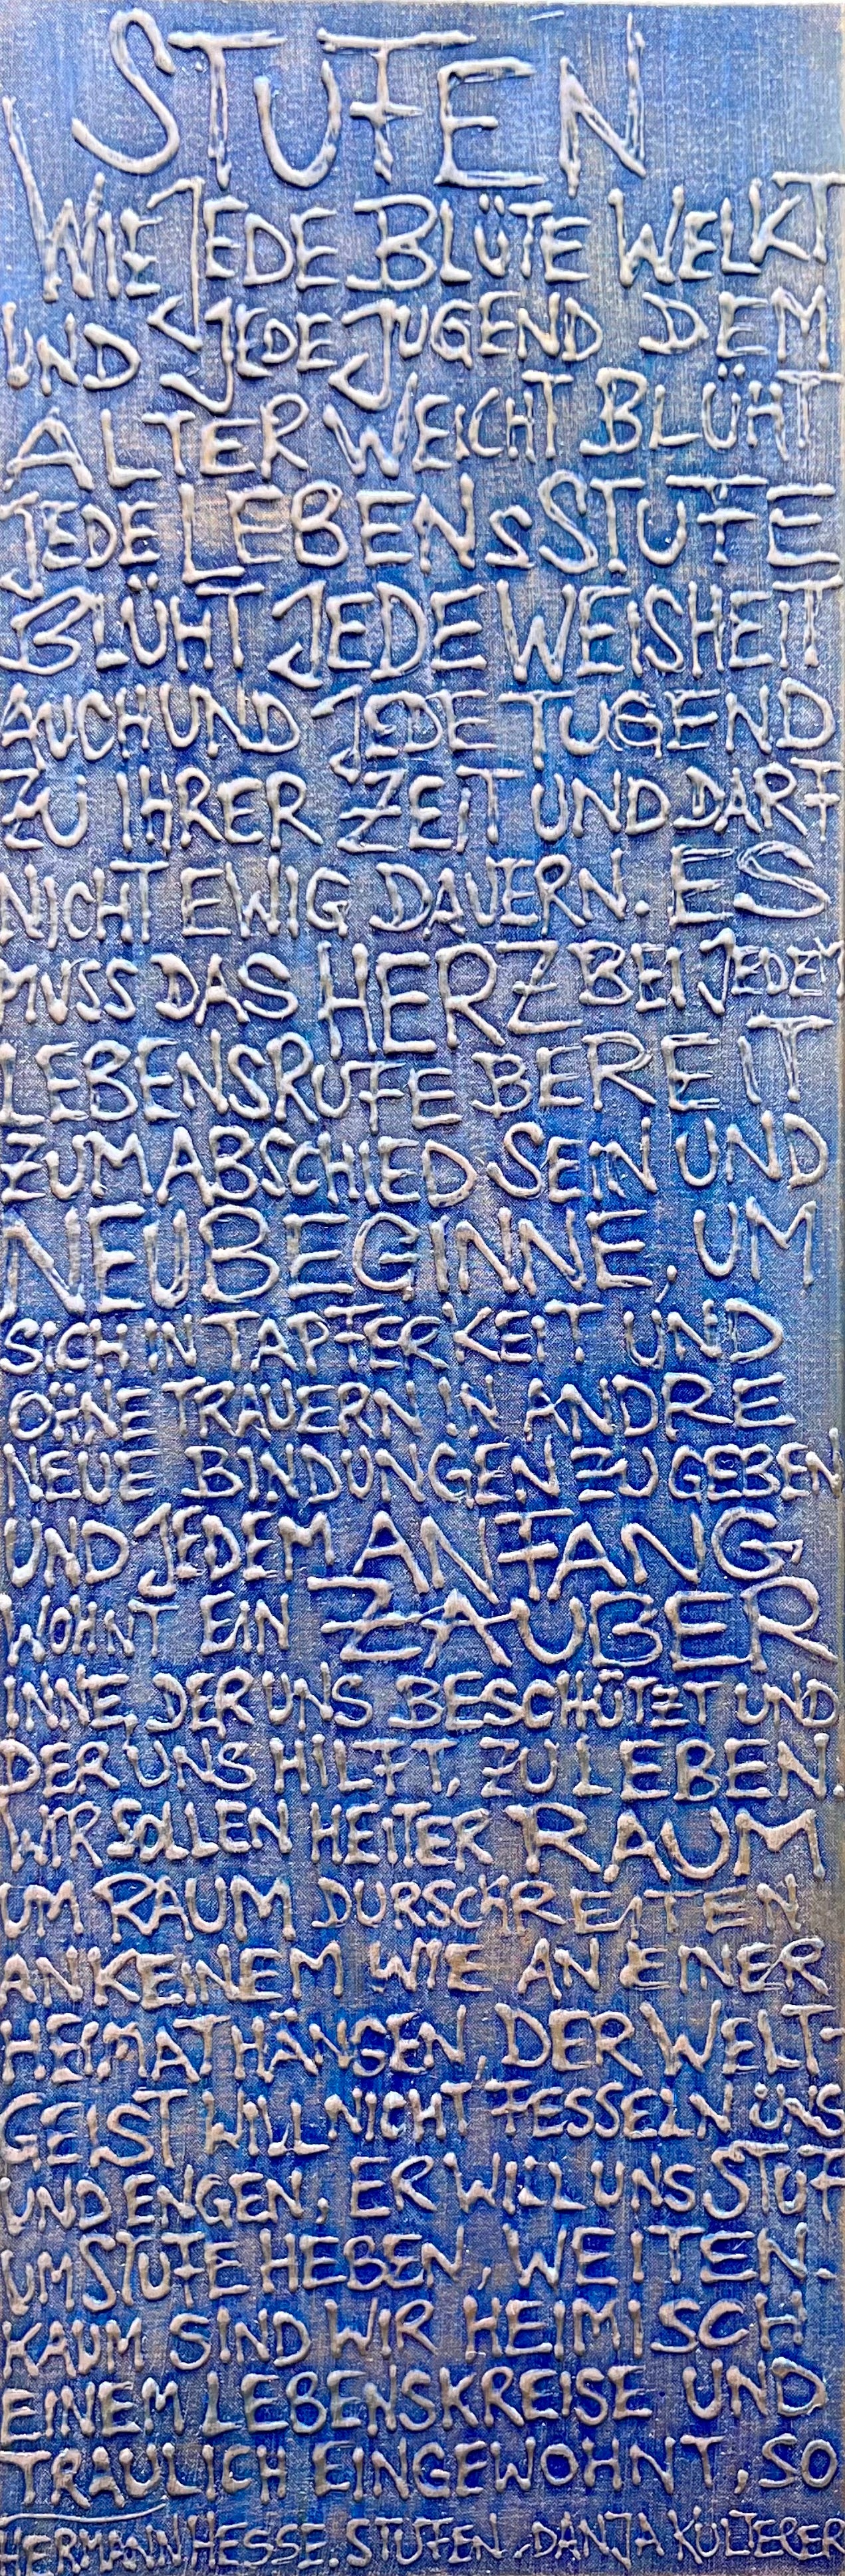 STUFEN
WIE JEDE BLÜTE WELKT
UND JEDE JUGEND DEM
ALTER WEICHT BLÜHT
JEDE LEBENSSTUFE
BLÜHT JEDE WEISHEIT
AUCH UND JEDE TUGEND
ZU IHRER ZEIT UND DARF
NICHT EWIG DAUERN. ES
MUSS DAS HERZ BEI JEDEM
LEBENSRUFE BEREIT
ZUM ABSCHIED SEIN UND
NEUBEGINNE, UM
SICH IN TAPFERKEIT UND
OHNE TRAUERN IN ANDRE
NEUE BINDUNGEN ZU GEBEN
UND JEDEM ANFANG
WOHNT EIN ZAUBER
INNE, DER UNS BESCHÜTZT UND
DER UNS HILFT, ZU LEBEN.
WIR SOLLEN HEITER RAUM
UM RAUM DURSCHREITEN
AN KEINEM WIE AN EINER
HEIMAT HÄNGEN, DER WELT-
GEIST WILL NICHT FESSELN UNS
UND ENGEN, ER WILL UNS STUF
UM STUFE HEBEN, WEITEN.
KAUM SIND WIR HEIMISCH
EINEM LEBENSKREISE UND
TRAULICH EINGEWOHNT, SO
HERMANN HESSE. STUFEN. DANJA KÜLTERER